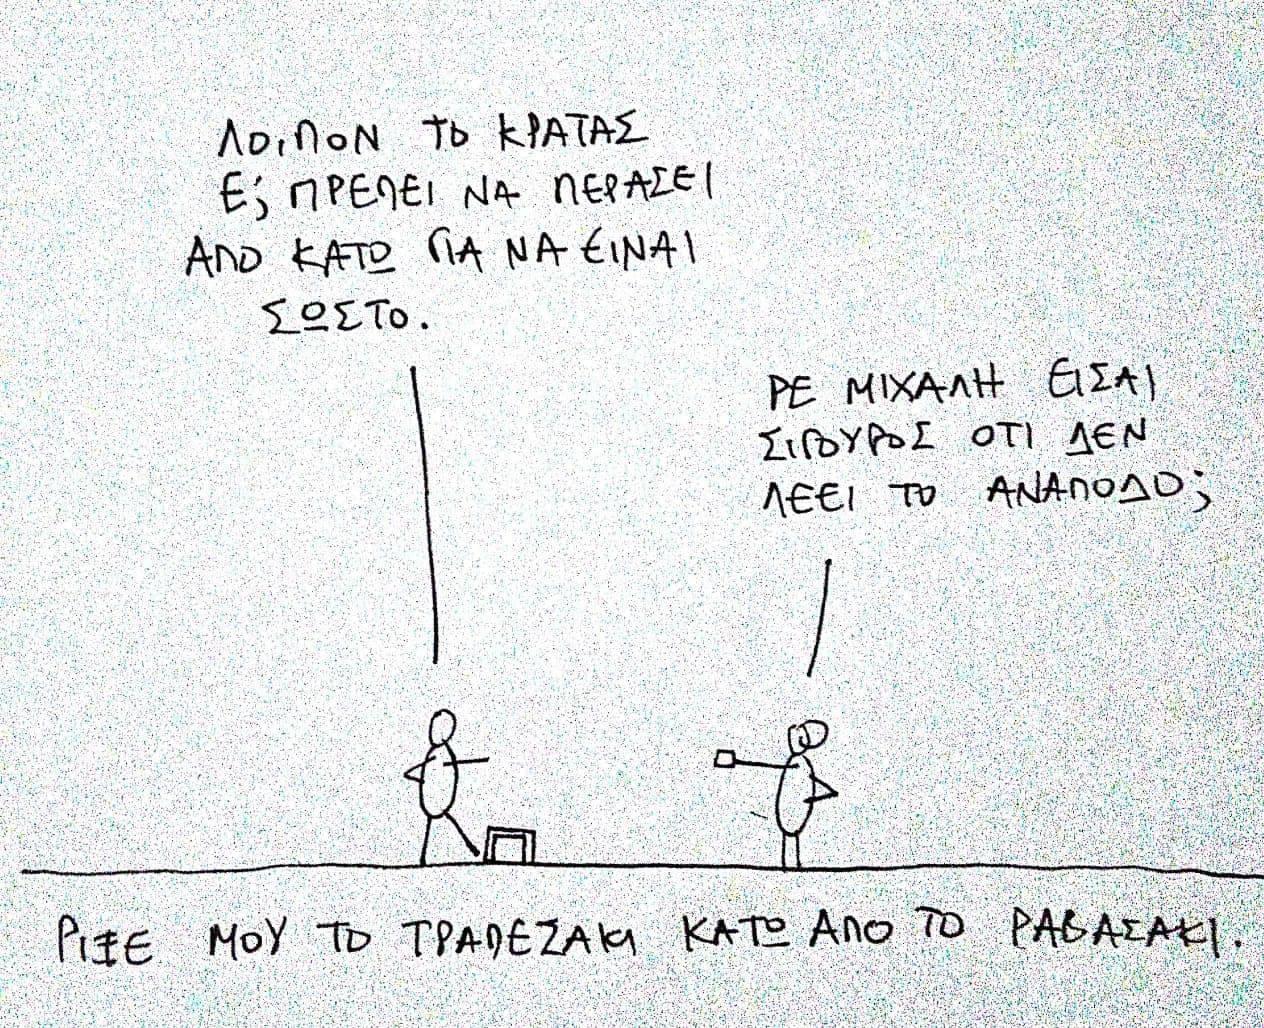 ΛΟΙΠΟΝ ΤΟ ΚΡΑΤΑΣ
Ε; ΠΡΕΠΕΙ ΝΑ ΠΕΡΑΣΕΙ
ΑΠΟ ΚΑΤΩ ΓΙΑ ΝΑ ΕΙΝΑΙ
ΣΩΣΤΟ.
ΡΕ ΜΙΧΑΛΗ ΕΙΣΑΙ
ΣΙΓΟΥΡΟΣ ΟΤΙ ΔΕΝ
ΛΕΕΙ ΤΟ ΑΝΑΠΟΔΟ;
ΡΙΞΕ ΜΟΥ ΤΟ ΤΡΑΠΕΖΑΚΙ ΚΑΤΩ ΑΠΟ ΤΟ ΡΑΒΑΣΑΚΙ.